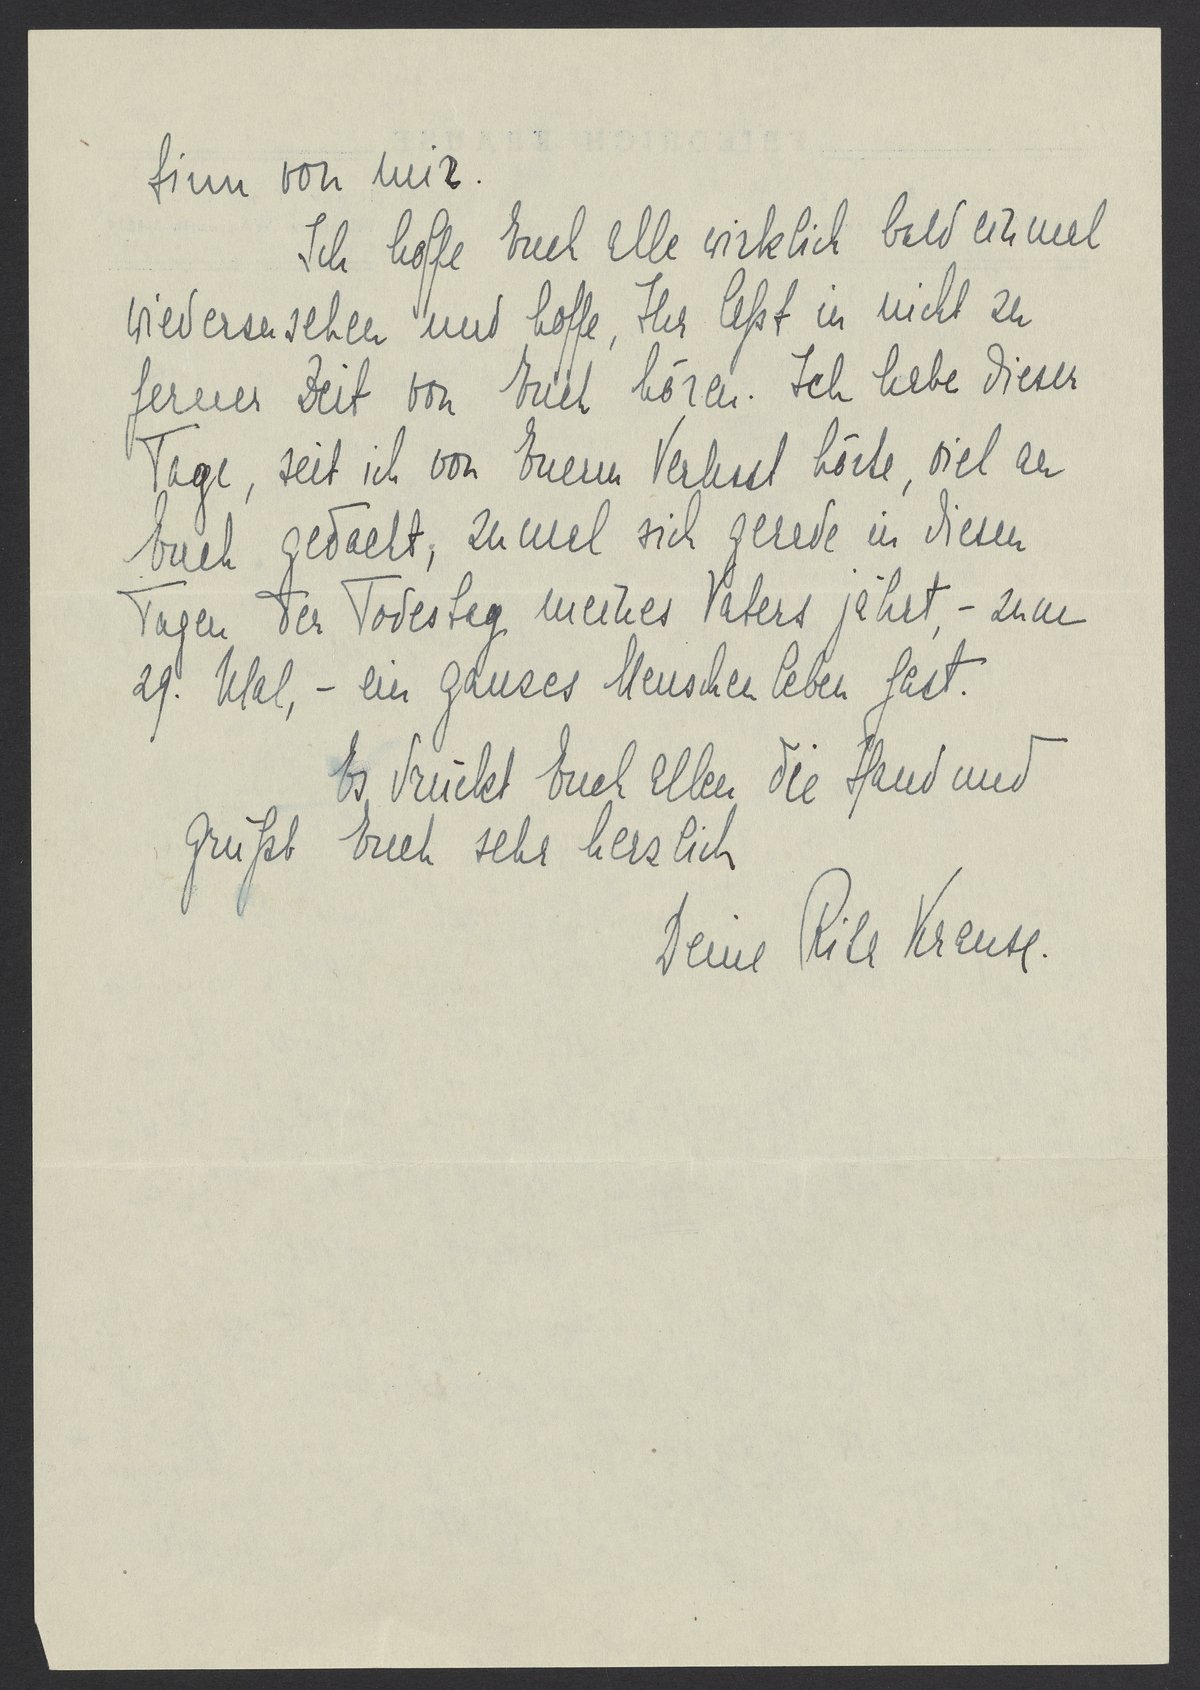 Sinn von mir.
Ich hoffe Euch alle wirklich bald einmal
wiederzusehen und hoffe, Ihr laßt in nicht zu
ferner Zeit von Euch hören. Ich habe dieser
Tage, seit ich von Euerm Verlust hörte, viel an
Euch gedacht, zumal sich gerade in diesen
Tagen der Todestag meines Vaters jährt, - zum
29. Mal, - ein ganzes Menschenleben fast.
Es drückt Euch allen die Hand und
grüßt Euch sehr herzlich
Deine Rita Krause.